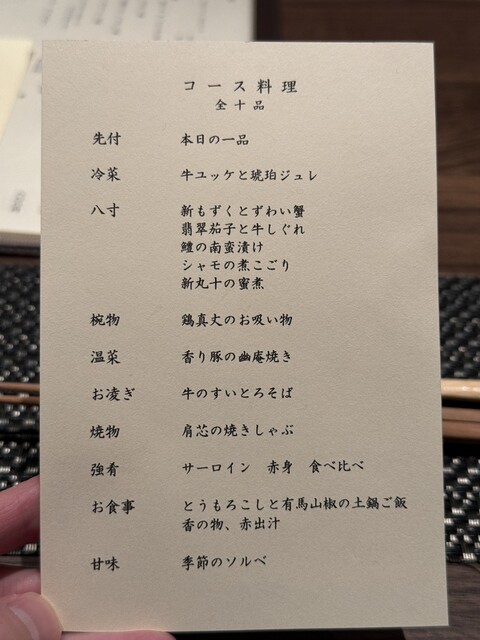 コース料理
全十品
先付 本日の一品
冷菜 牛ユッケと琥珀ジュレ
八寸 新もずくとずわい蟹
翡翠茄子と牛しぐれ
鱧の南蛮漬け
シャモの煮こごり
新丸十の蜜煮
椀物 鶏真丈のお吸い物
温菜 香り豚の幽庵焼き
お凌ぎ 牛のすいとろそば
焼物 肩芯の焼きしゃぶ
強肴 サーロイン 赤身 食べ比べ
お食事 とうもろこしと有馬山椒の土鍋ご飯
香の物、赤出汁
甘味 季節のソルベ